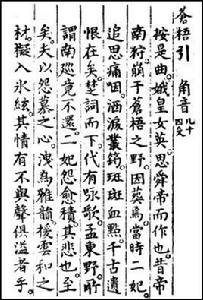 蒼梧引 角音
按是曲。娥皇女英。思舜帝而作也。昔帝
南狩。崩于蒼梧之野。因葬焉。當時二妃
追思痛咽。洒淚叢筠。斑斑血點。千古遺
恨在矣。楚詞而下。代有咏歌。孟東野所
謂南巡竟不還。二妃怨愈積。其悲也。至
矣。夫以怨慕之心。洩為雅韻。援雲和之
材。擬入氷絃。其情有不與聲俱溢者乎。